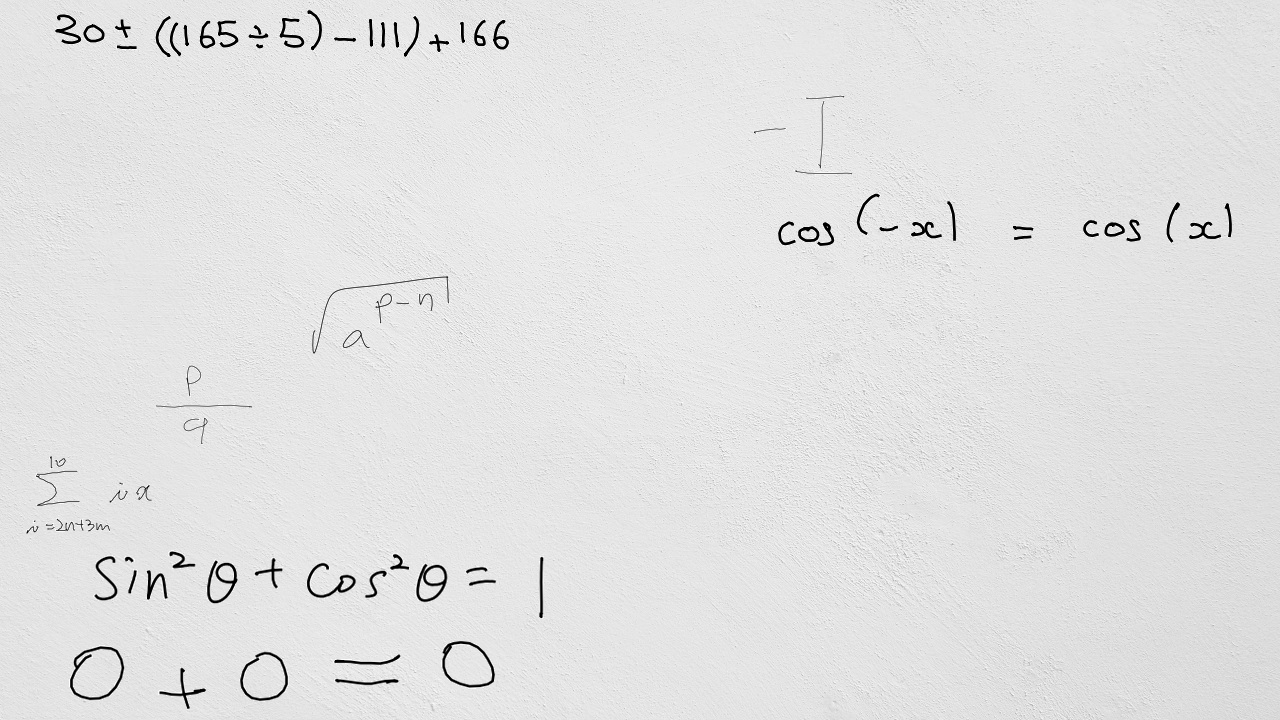 30 ± ((165 ÷ 5) - 111) + 166
- I
cos (-x) = cos (x)
√a^{p-n}
p/q
∑_{i=2n+3m}^{10} ix
sin²θ + cos²θ = 1
0 + 0 = 0